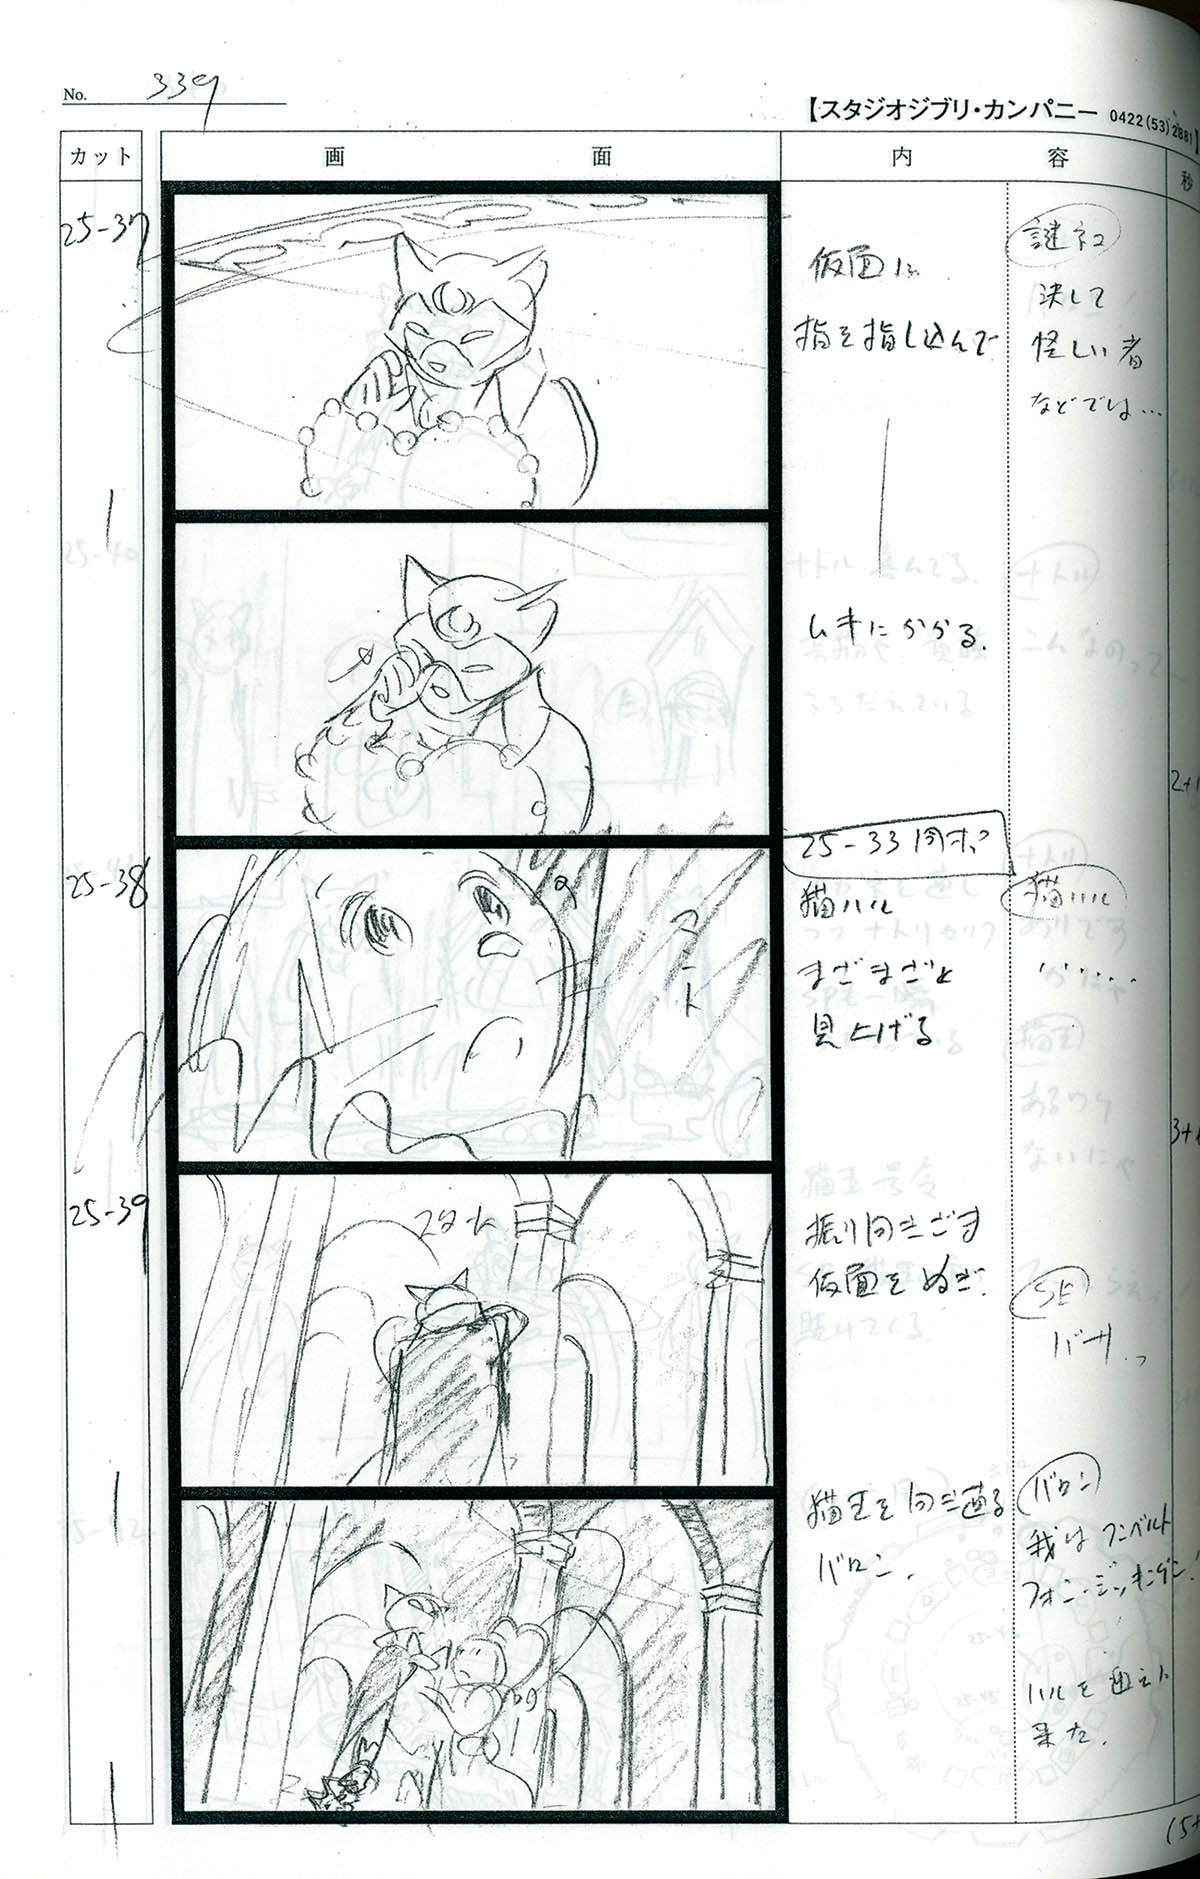 No. 339
【スタジオジブリ・カンパニー 0422(53)2881】
カット
画 面
内 容
秒
25-37
仮面に
指を指し込んで
謎ネコ
決して
怪しい者
などでは…
ムキにかかる。
2+1
25-38
25-33 同ポ
マント
猫ハル
まざまざと
見上げる
猫ハル
……
3+
25-39
振り向きざま
仮面をぬぎ、
SE
バサッ
猫王を向き直る
バロン。
バロン
我はフンベルト
フォン・ジッキンゲン!
ハルを迎えに
来た。
(5+